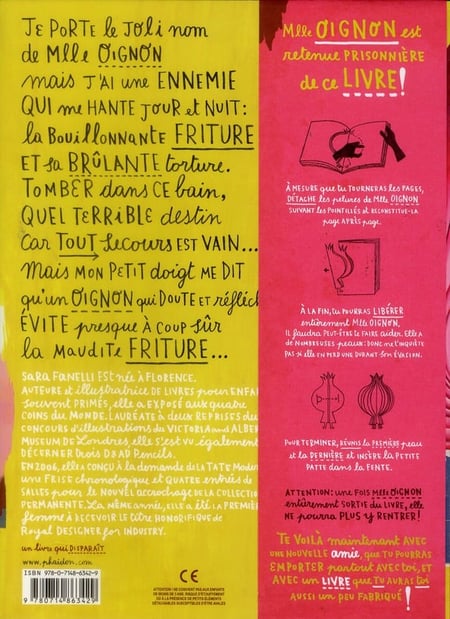 JE PORTE LE JOLI NOM
de Mlle OIGNON
mais J'AI UNE ENNEMIE
QUI me HANTE JOUR et NUIT:
la BOUILLONNANTE FRITURE
ET sa BRÛLANTE torture.
TOMBER dans CE bain,
QUEL TERRIBLE destin
Car TOUT secours EST VAIN...
Mais MON PETIT doigt ME DIT
qu'un OIGNON qui DOUTE ET réfléch
ÉVITE presque À COUP sûr
la maudite FRITURE...
SARA FANELLI EST NÉE À FLORENCE.
AUTEURE et illustratrice DE LIVRES pour ENFAN
souvent PRIMÉS, elle a EXPOSÉ AUX quatre
COINS du MONDE. LAURÉATE à deux REPRISES du
CONCOURS d'illustrations DU VICTORIA and ALBER
MUSEUM DE Londres, elle S'EST VU également
DÉCERNER trois D&AD Pencils.
EN 2006, elle a CONÇU à la demande de la TATE Moder
UNE FRISE chronologique et QUATRE entrées de
SALLES pour le NOUVEL accrochage DE LA COLLECTIO
PERMANENTE. La même année, elle A été la PREMIÈ
femme à RECEVOIR LE titre HONORIFIQUE de
Royal DESIGNER for INDUSTRY.
un livre qui DISPARAÎT
www.phaidon.com
ISBN 978-0-7148-6342-9
9 780714 863429
CE
ATTENTION ! NE CONVIENT PAS AUX ENFANTS
DE MOINS DE 3 ANS. RISQUE D'ÉTOUFFEMENT
DÛ À LA PRÉSENCE DE PETITS ÉLÉMENTS
DÉTACHABLES SUSCEPTIBLES D'ÊTRE AVALÉS
Mlle OIGNON est
retenue PRISONNIÈRE
de ce LIVRE!
À MESURE que tu TOURNERAS les PAGES,
DÉTACHE les pelures de Mlle OIGNON
SUIVANT les POINTILLÉS et RECONSTITUE-LA
page APRÈS page.
À LA FIN, tu POURRAS LIBÉRER
entièrement Mlle OIGNON,
il faudra PEUT-être te FAIRE aider. ELLE A
de NOMBREUSES peaux: donc ne t'INQUIÈTE
PAS si elle EN PERD UNE DURANT SON ÉVASION.
POUR TERMINER, RÉUNIS la PREMIÈRE peau
et la DERNIÈRE et INSÈRE la PETITE
PATTE dans la FENTE.
ATTENTION: une FOIS Mlle OIGNON
entièrement SORTIE du LIVRE, elle
ne pourra PLUS y RENTRER!
TE VOILÀ maintenant AVEC
une NOUVELLE amie, que tu POURRAS
EMPORTER partout AVEC toi, ET
AVEC un LIVRE que TU AURAS toi
AUSSI un peu FABRIQUÉ!